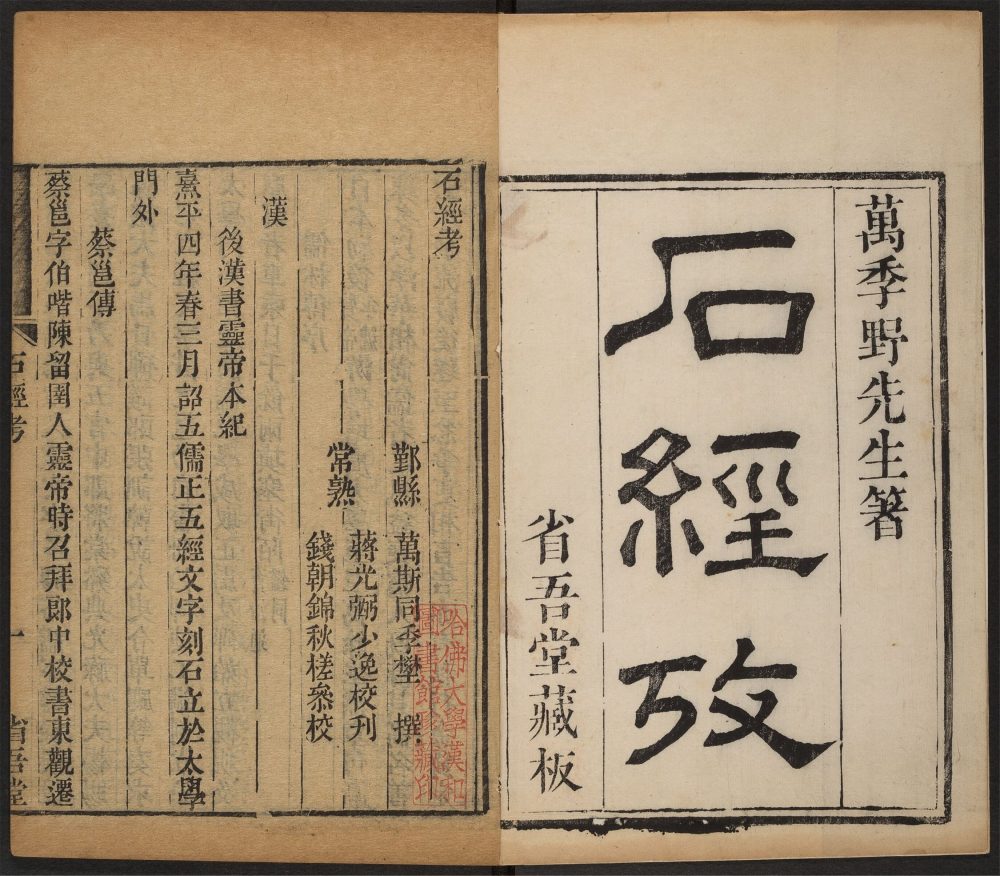 萬季野先生箸
石經攷
省吾堂藏板
石經考
鄞縣 萬斯同季壄 撰
常熟 蔣光弼少逸校刊
錢朝錦秋槎叅校
漢
後漢書靈帝本紀
熹平四年春三月詔五儒正五經文字刻石立於太學
門外
蔡邕傳
蔡邕字伯喈陳留圉人靈帝時召拜郎中校書東觀遷
石經考
一
省吾堂
哈佛大學漢和
圖書館珍藏印